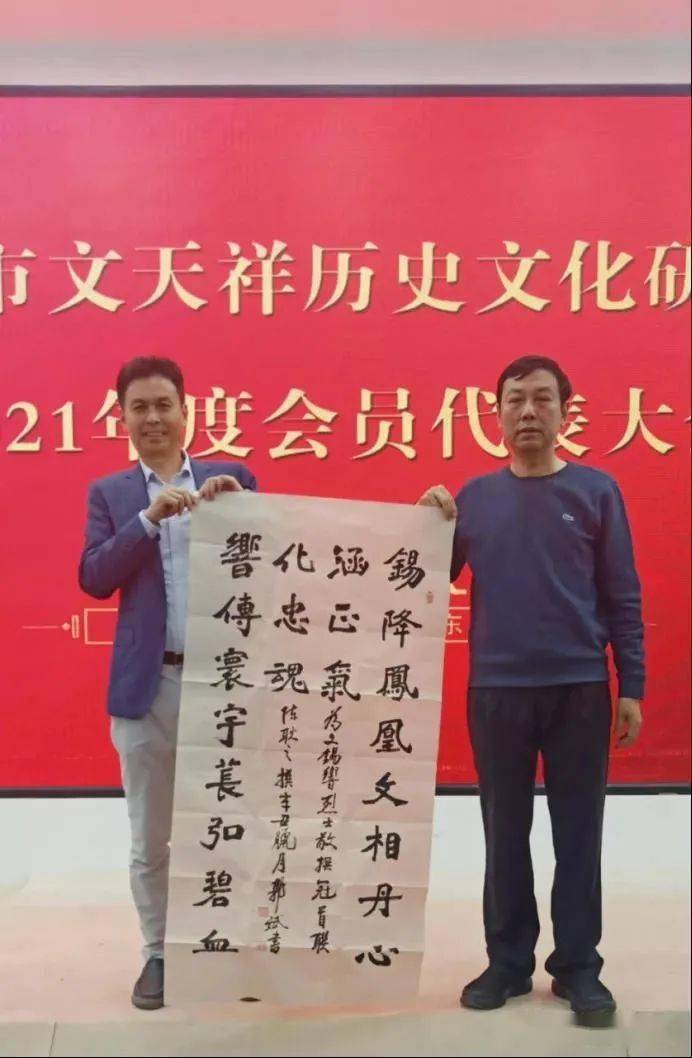 市文天祥历史文化研
21年度会员代表大
东
錫降鳳凰文相丹心
涵正氣
響傳寰宇萇弘碧血
化忠魂
為文錫響烈士敬撰冠首联
陈耿之撰辛丑臘月郭斌書